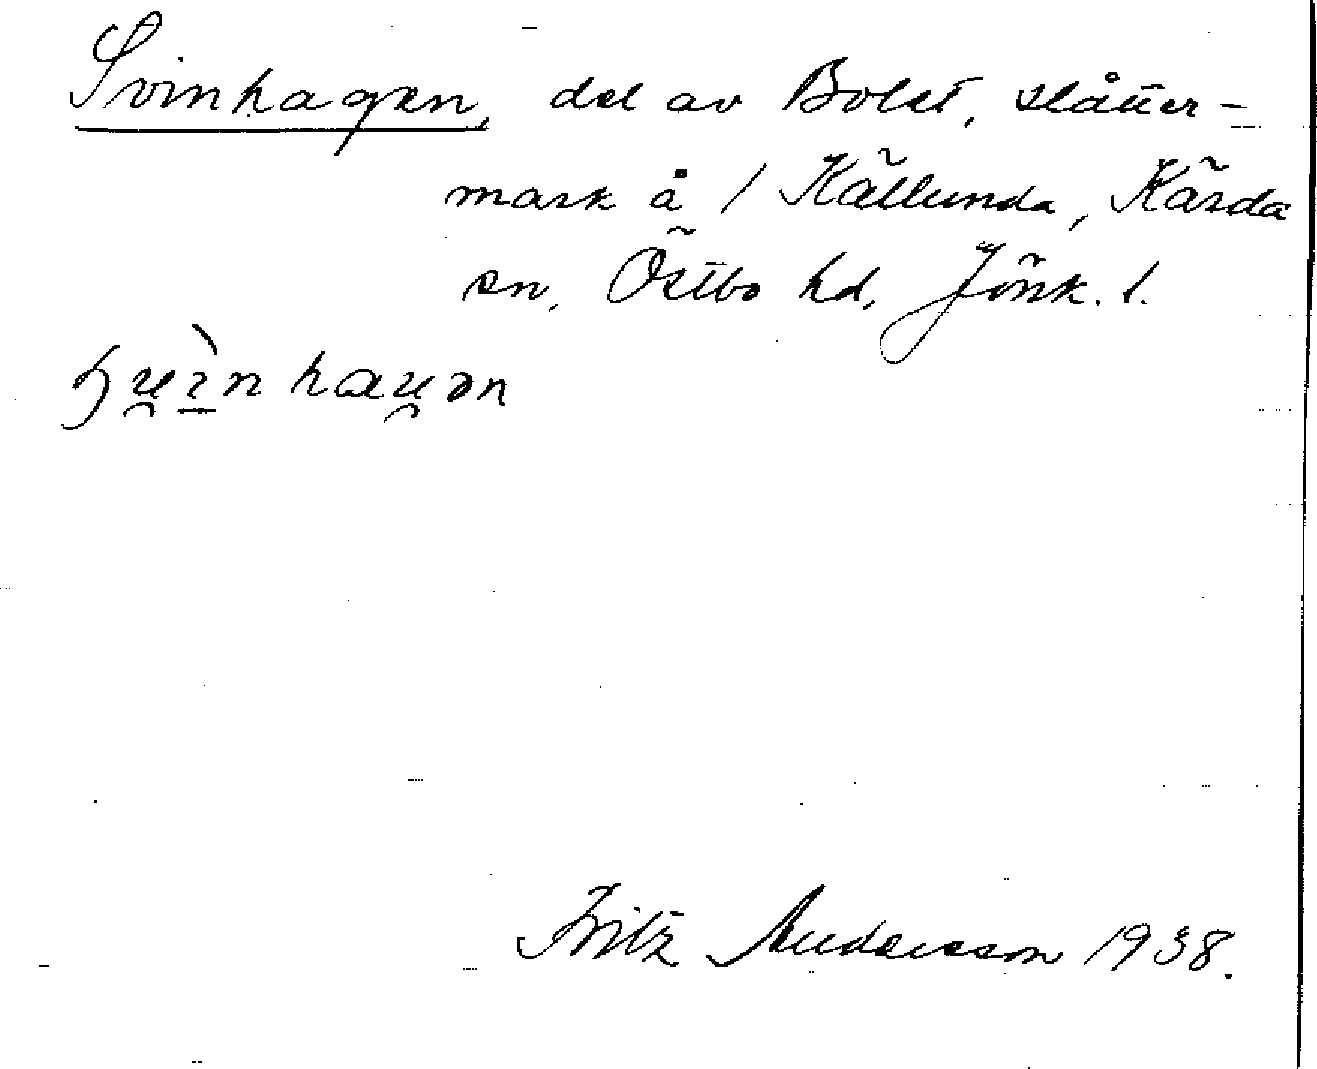 Svinhagen, del av Bolet, slåtter-
mark å / Källunda, Kärda
sn, Östbo hd, Jönk. l.
Fritz Andersson 1938.